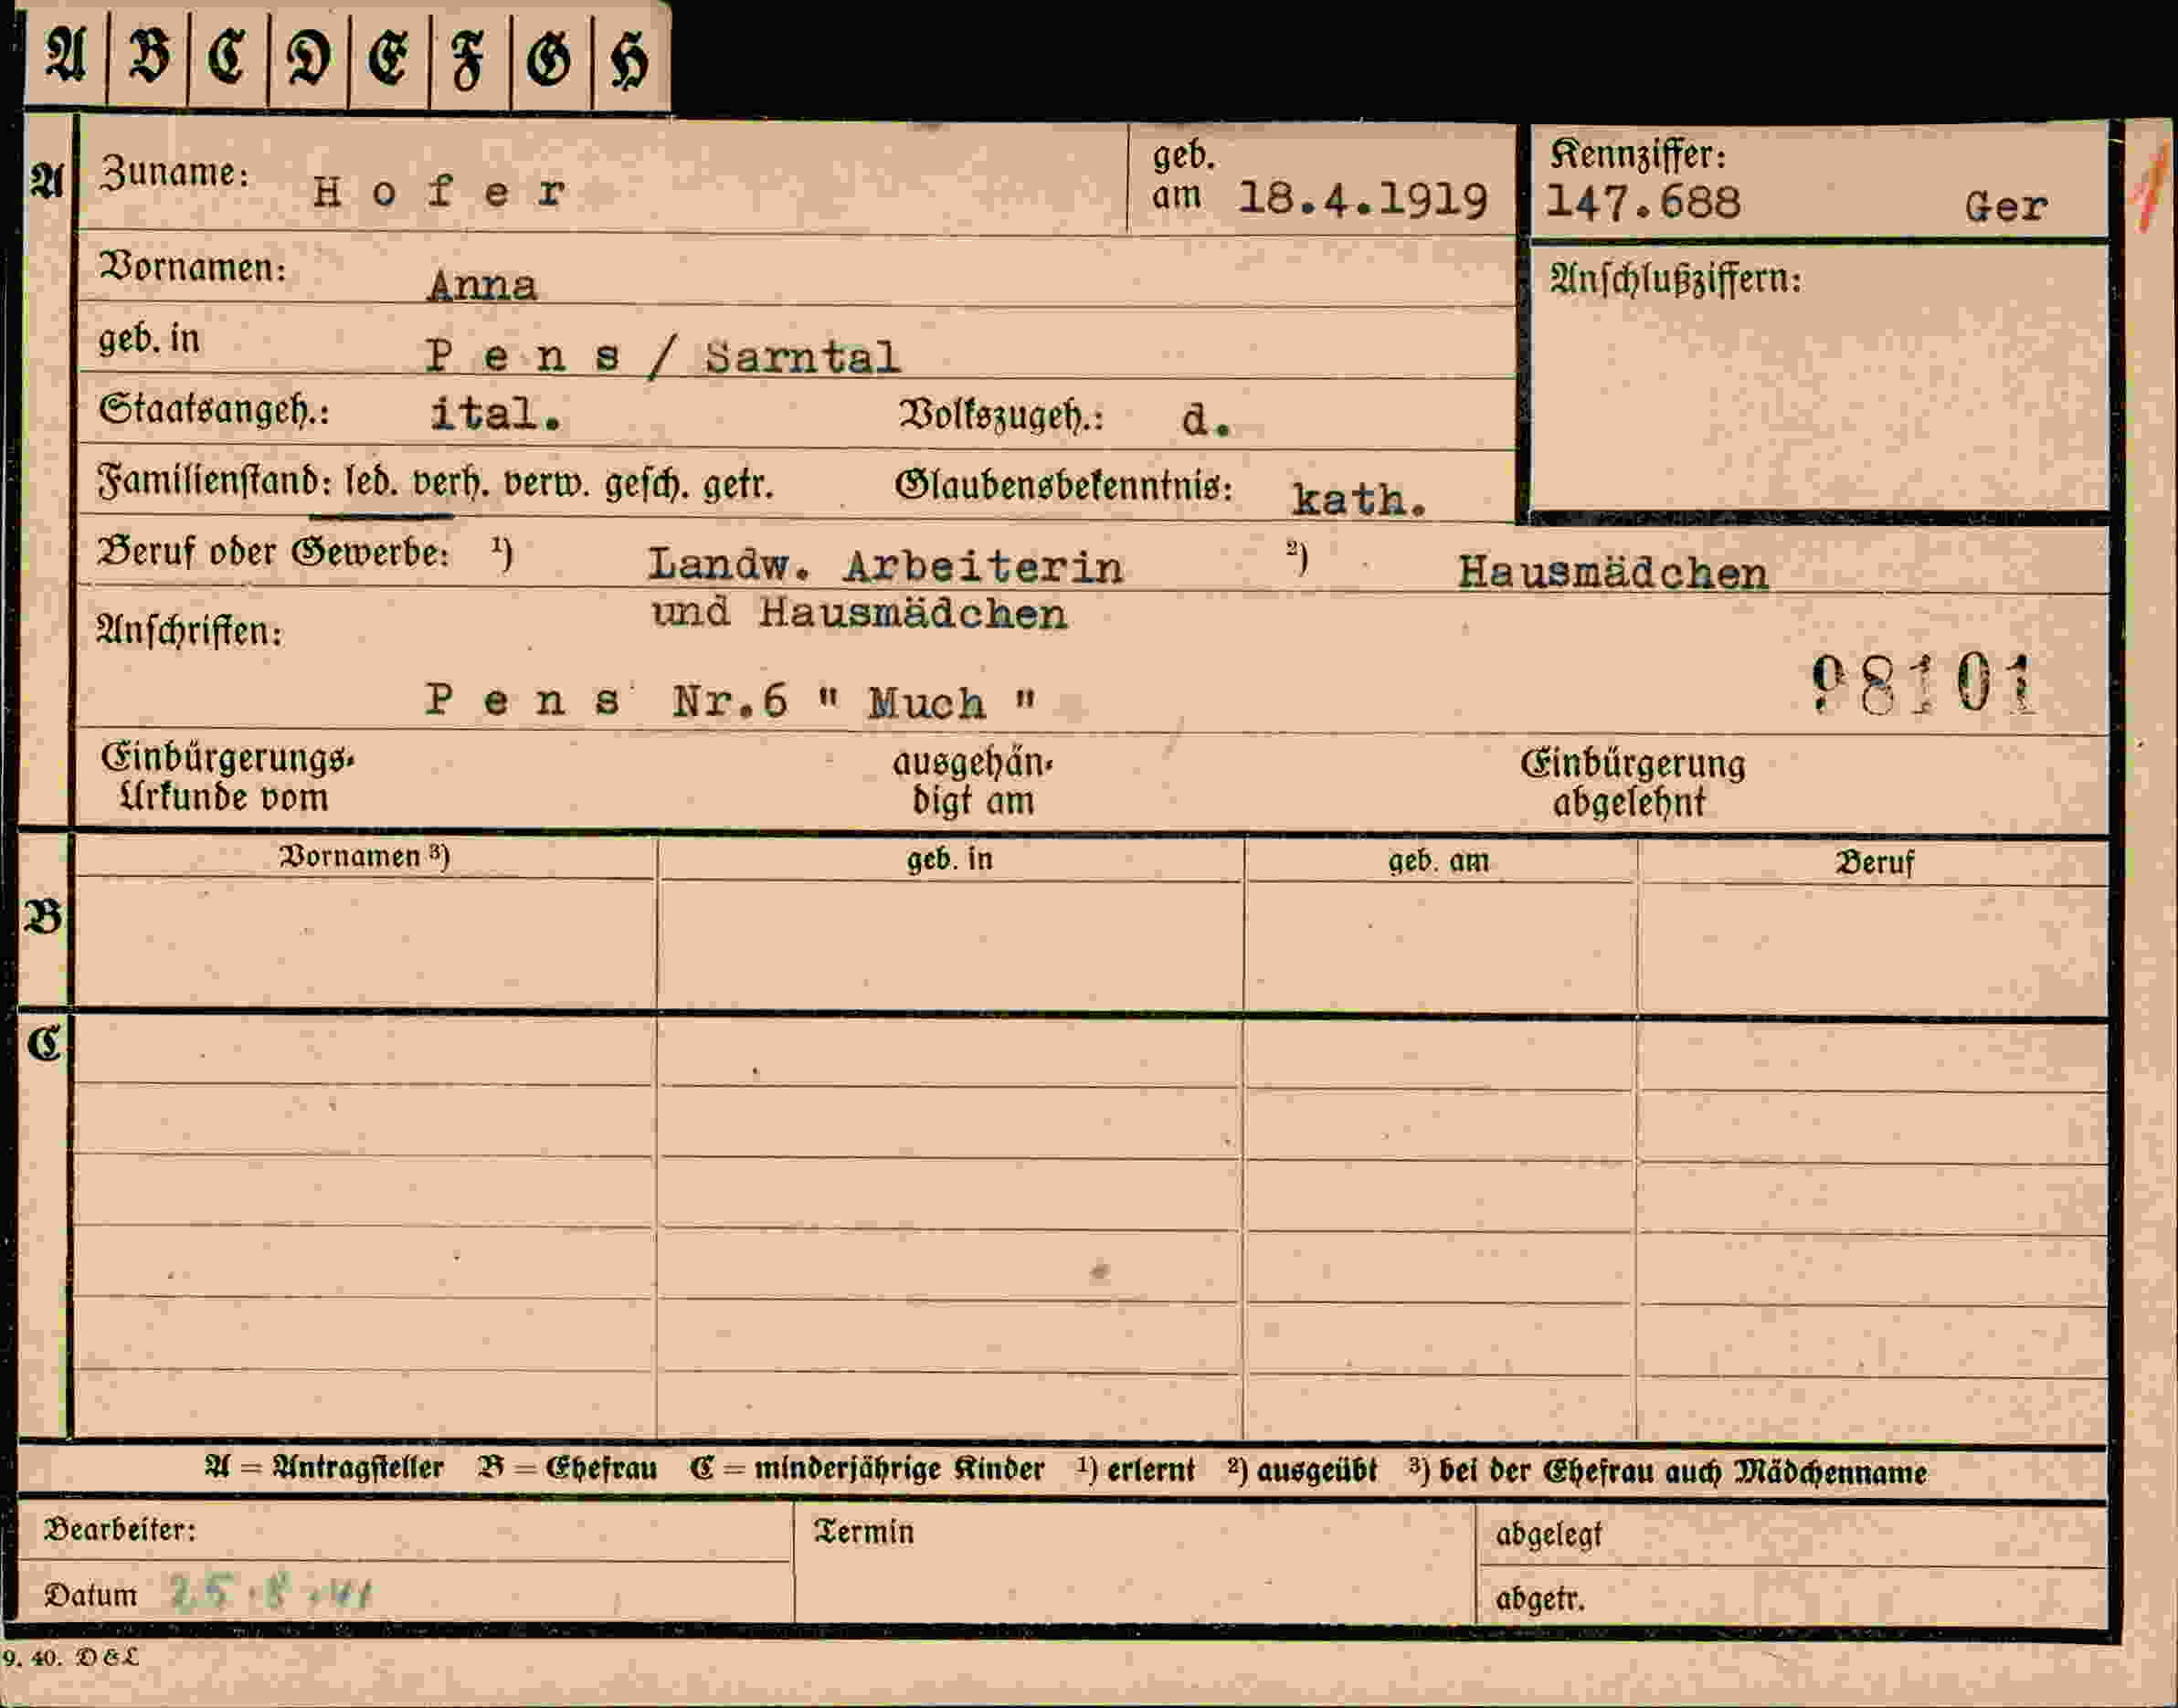 A B C D E F G H
A Zuname: Hofer geb. am 18.4.1919 Kennziffer: 147.688 Ger
Vornamen: Anna Anschlußziffern:
geb. in Pens / Sarntal
Staatsangeh.: ital. Volkszugeh.: d.
Familienstand: led. verh. verw. gesch. getr. Glaubensbekenntnis: kath.
Beruf oder Gewerbe: 1) Landw. Arbeiterin 2) Hausmädchen
und Hausmädchen
Anschriften:
Pens Nr.6 " Much " 98101
Einbürgerungs- ausgehän- Einbürgerung
Urkunde vom digt am abgelehnt
Vornamen 3) geb. in geb. am Beruf
B
C
A = Antragsteller B = Ehefrau C = minderjährige Kinder 1) erlernt 2) ausgeübt 3) bei der Ehefrau auch Mädchenname
Bearbeiter: Termin abgelegt
Datum 25.8.41 abgetr.
9. 40. D & L